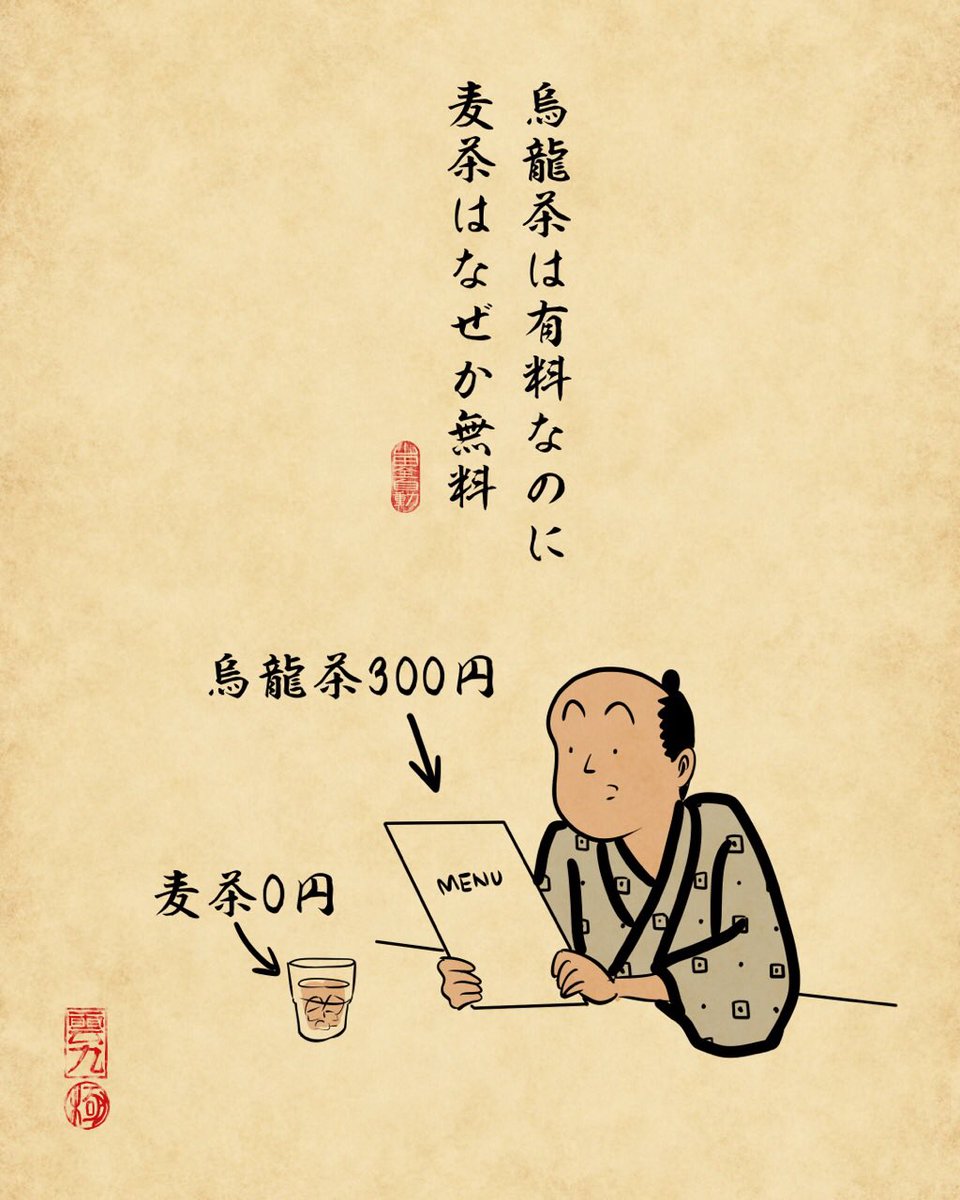 烏龍茶は有料なのに
麦茶はなぜか無料
烏龍茶300円
MENU
麦茶0円